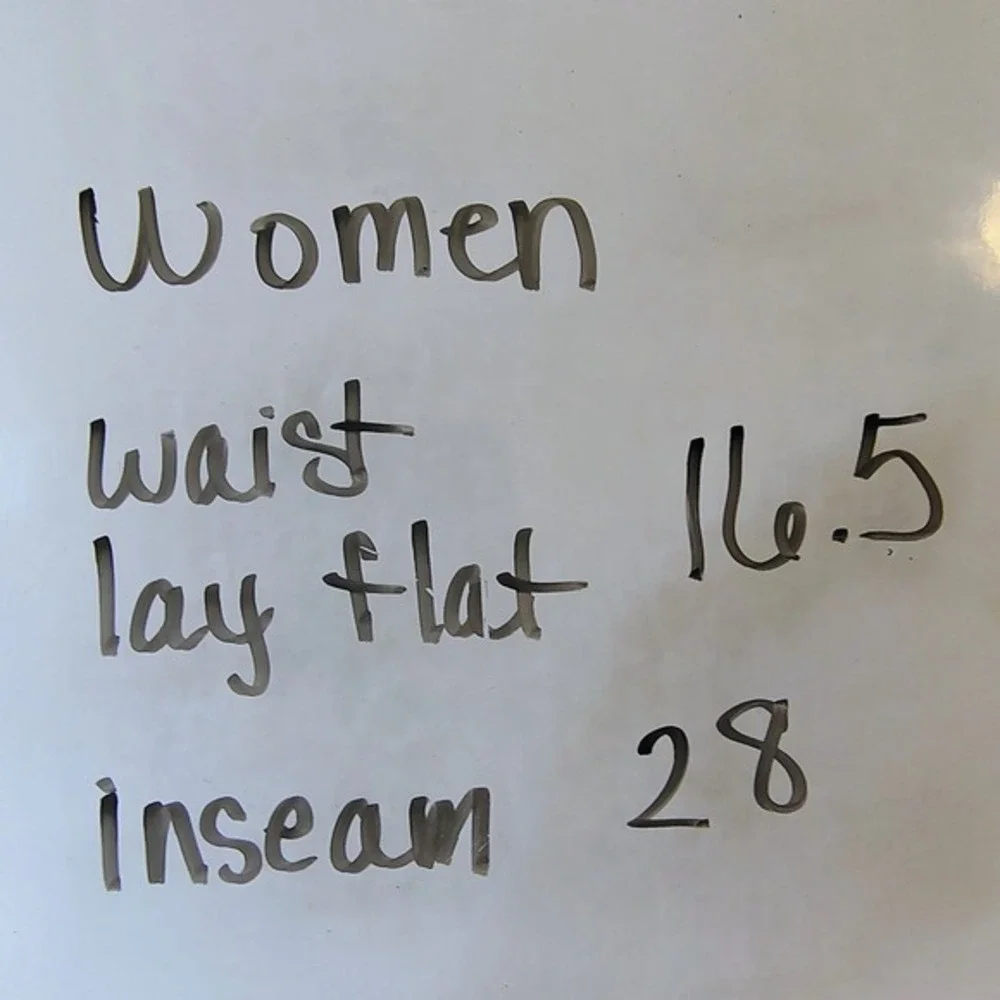 Women
waist
lay flat 16.5
inseam 28